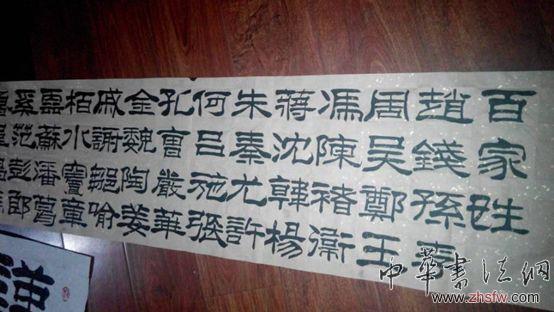 百家姓
趙錢孫李
周吳鄭王
馮陳褚衛
蔣沈韓楊
朱秦尤許
何呂施張
孔曹嚴華
金魏陶姜
戚謝鄒喻
柏水竇章
雲蘇潘葛
奚范彭郎
中華書法網
www.zhsfw.com